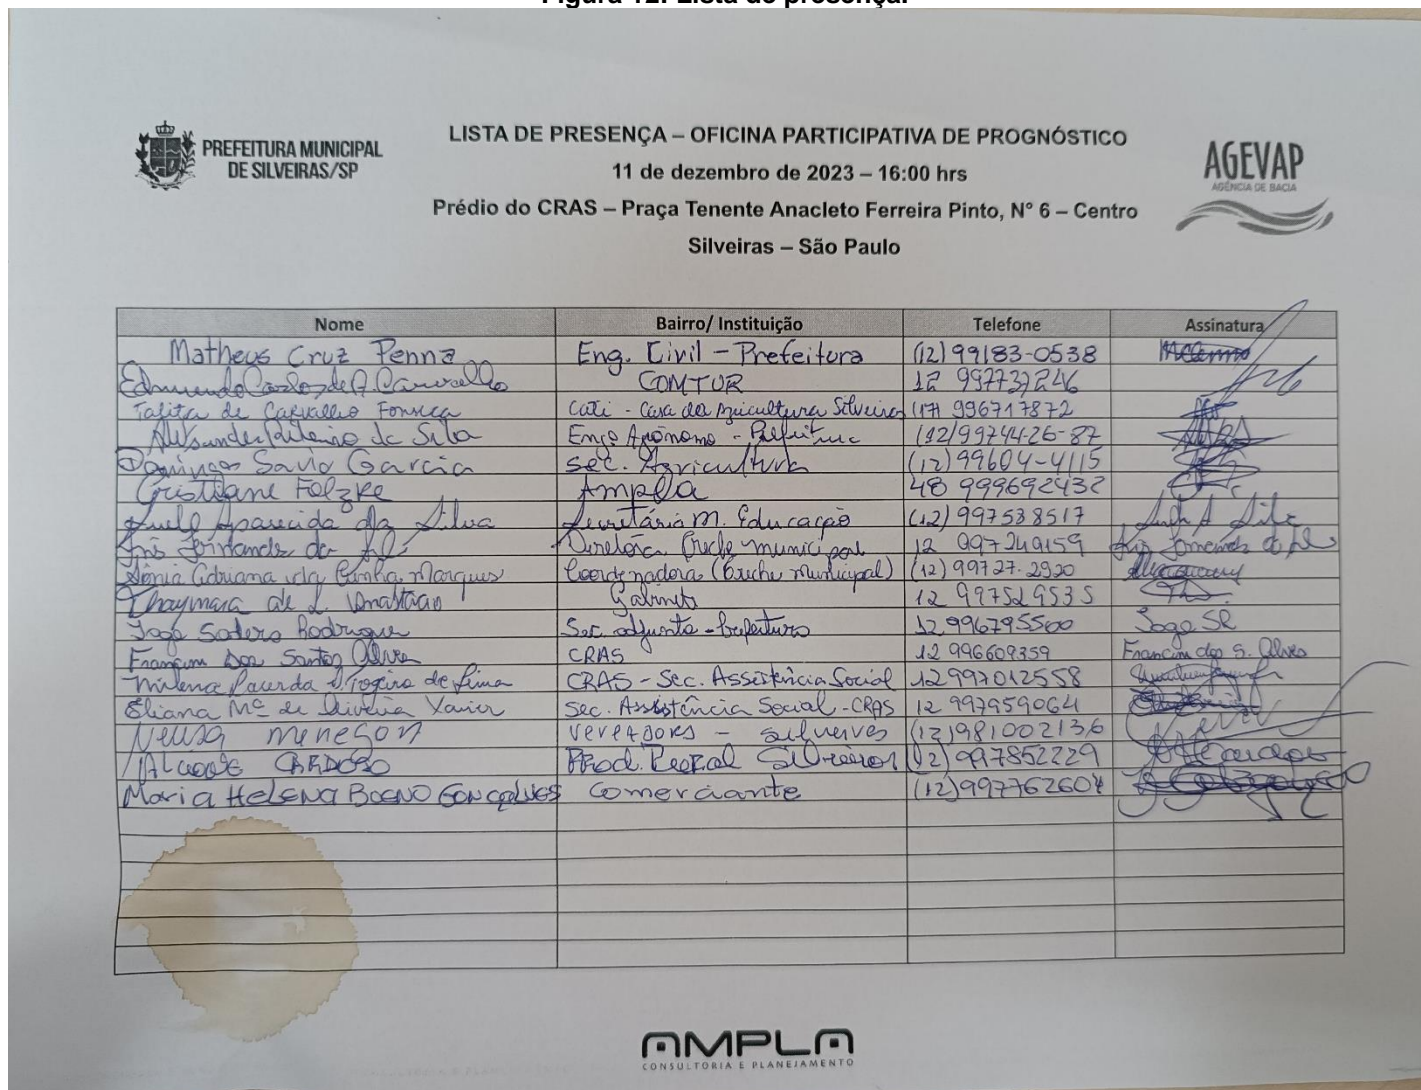 Figura 12: Lista de presença.
PREFEITURA MUNICIPAL
DE SILVEIRAS/SP
LISTA DE PRESENÇA – OFICINA PARTICIPATIVA DE PROGNÓSTICO
11 de dezembro de 2023 – 16:00 hrs
Prédio do CRAS – Praça Tenente Anacleto Ferreira Pinto, N° 6 – Centro
Silveiras – São Paulo
AGEVAP
AGÊNCIA DE BACIA
Nome Bairro/ Instituição Telefone Assinatura
Matheus Cruz Penna Eng. Civil – Prefeitura (12) 99183-0538
Edmundo Carlos de A. Carvalho COMTUR 12 997737246
Talita de Carvalho Fonseca Cati - Casa da Agricultura Silveiras (17) 996717872
Alexsander Ribeiro da Silva Engº Agrônomo - Prefeitura (12) 99744-26-87
Domingos Savio Garcia Sec. Agricultura (12) 99604-4115
Cristiane Folzke Ampla 48 999692432
Aparecida da Silva Secretária M. Educação (12) 997538517
Diretora Creche municipal 12 997249159
Sônia Adriana da Cunha Marques Coordenadora (Creche Municipal) (12) 99727-2920
Thaymara de L. Anastacio Gabinete 12 997529535
Sodero Rodrigues Sec. adjunta - Prefeitura 12 996795500
dos Santos Alves CRAS 12 996609359 dos S. Alves
Milena de Lima CRAS - Sec. Assistência Social 12997012558
Eliana Mª de Oliveira Xavier Sec. Assistência Social - CRAS 12 997959064
Neusa menegon vereadora - silveiras (12)981002136
CARDOSO Prod. Rural Silveiras (12) 997852229
Maria HELENA BOENO GONÇALVES Comerciante (12)997762604
AMPLA
CONSULTORIA E PLANEJAMENTO